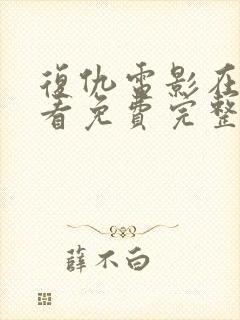 復仇電影在
看免費完整
薛不白